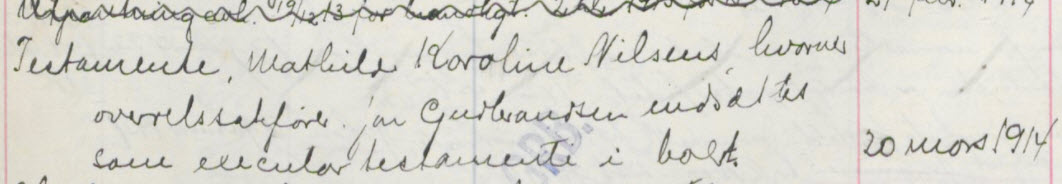 Testamente, Mathilde Karoline Nilsens, hvorved
overretssakfører Gudbrandsen indsættes
som executor testamenti i boet.
20 mars 1914